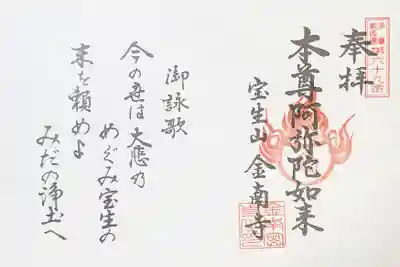 六十九番
奉拝
本尊阿弥陀如来
宝生山 金南寺
御詠歌
今の世は大悲乃
めぐみ宝生の
末を頼めよ
みだの浄土へ